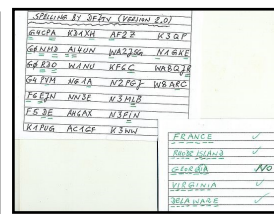 SPELLING BY DEFIN (VERSION 2.0)
G4CPA KD1XH AF2Z K3QP
GØNMD AI4UN WA2JSG N1GKE
GØRDO W1NU KF6C WA8QJR
G4PYM NG1A N2FGJ W8ARC
F6EJN NN3E N3MLB
F5DE AH6AX N3FIN
K1PUG AC1GF K3NW
FRANCE ✓
RHODE ISLAND ✓
GEORGIA NO
VIRGINIA ✓
DELAWARE ✓